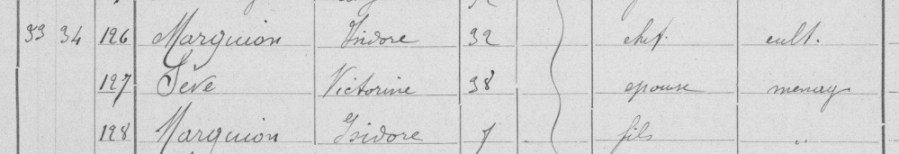 33 34 126 Marquion Isidore 32 chef. cult.
127 Sève Victorine 38 epouse menag
128 Marquion Isidore fils "